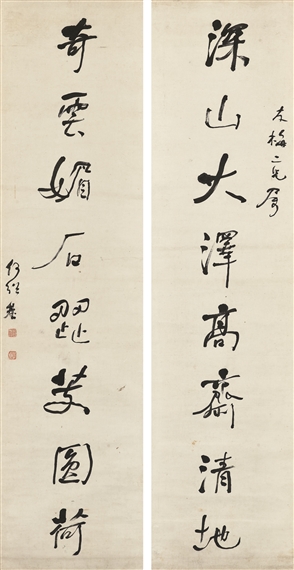 深山大澤高齋清地
梅二兄屬
奇雲媚石歰芰圓荷
何紹基